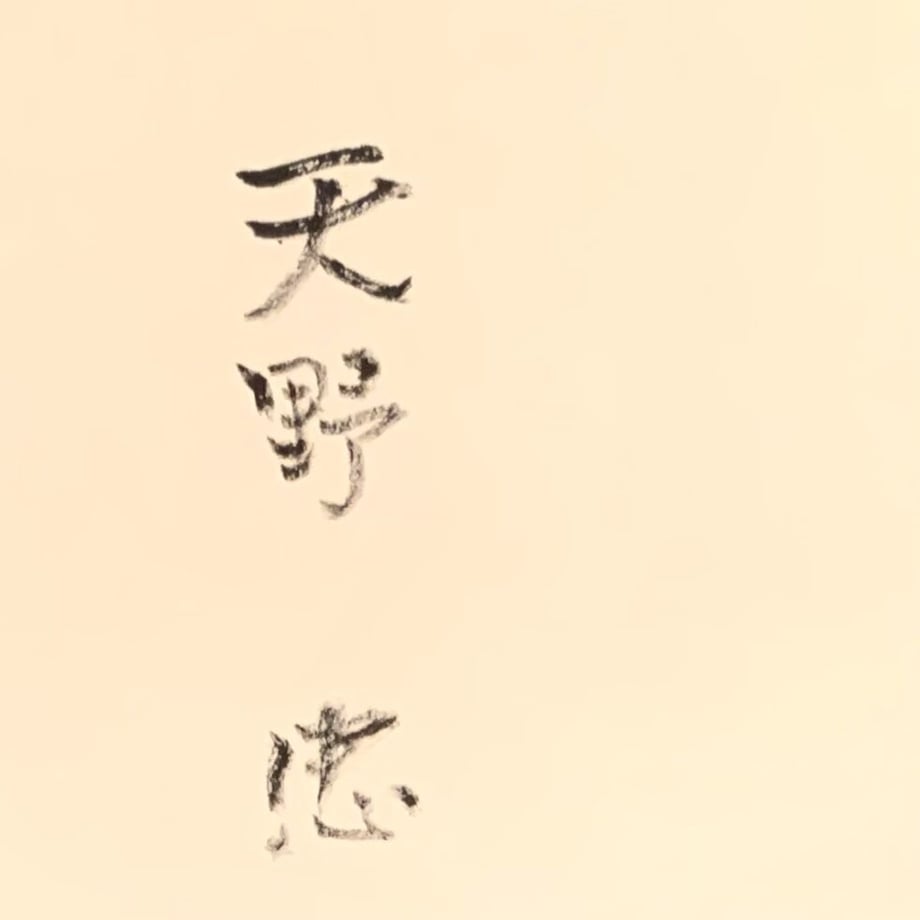 天野 忠